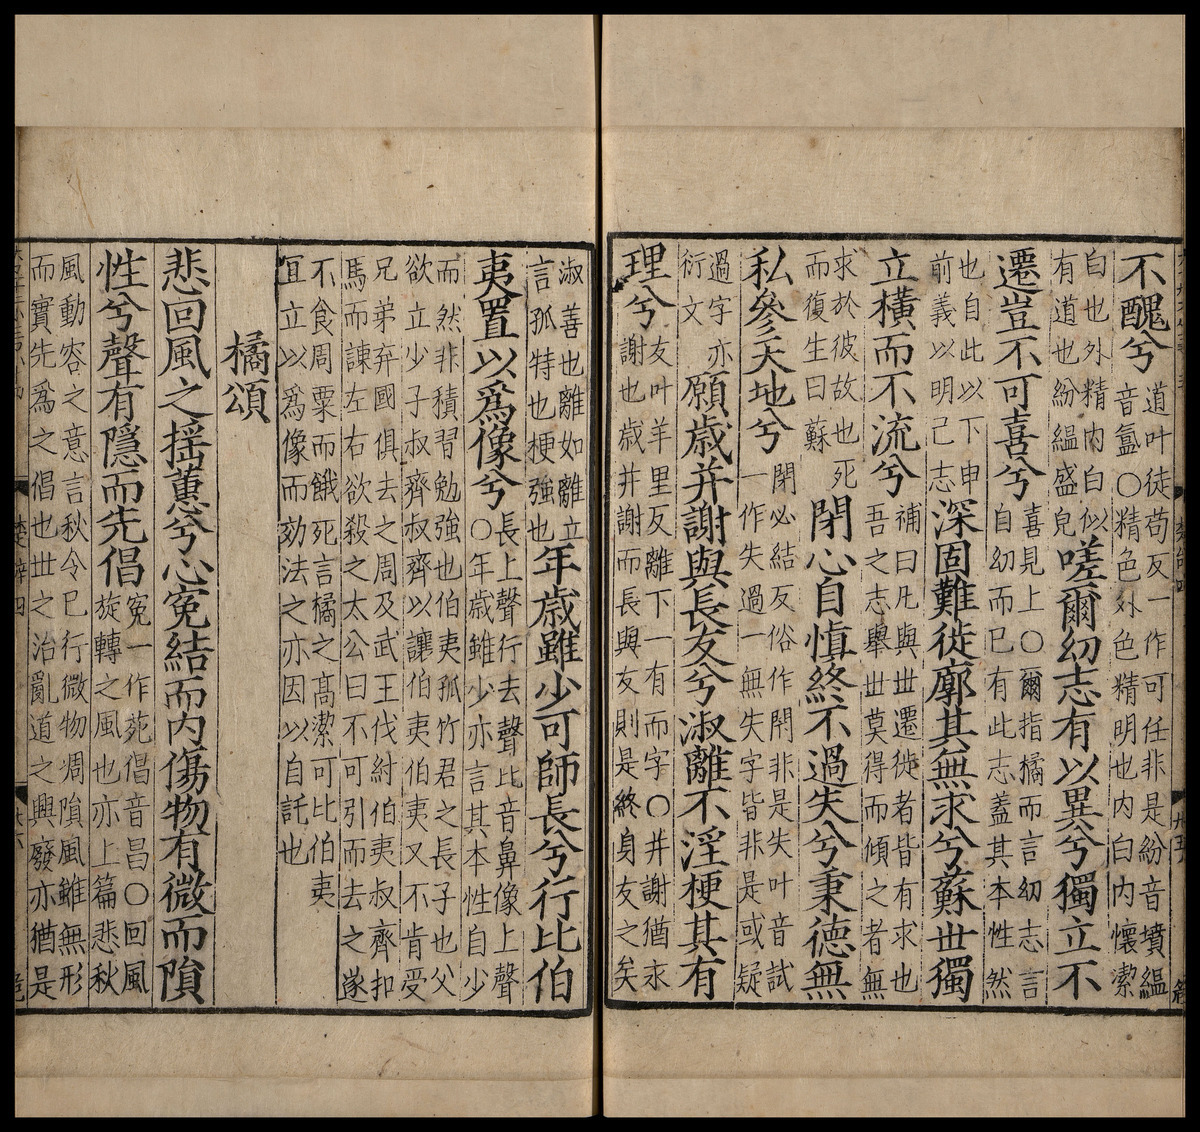 不醜兮
道叶徒苟反一作可任非是紛音墳緼
音氳○精色外色精明也内白内懷潔
白也外精内白似
有道也紛緼盛皃
嗟爾幼志有以異兮獨立不
遷豈不可喜兮
喜見上○爾指橘而言幼志言
自幼而已有此志蓋其本性然
也自此以下申
前義以明己志
深固難徙廓其無求兮蘇世獨
立橫而不流兮
補曰凡與世遷徙者皆有求也
吾之志舉世莫得而傾之者無
求於彼故也死
而復生曰蘇
閉心自慎終不過失兮秉德無
私參天地兮
閉必結反俗作閇非是失叶音試
一作失過一無失字皆非是或疑
過字亦
衍文
願歳并謝與長友兮淑離不淫梗其有
理兮
友叶羊里反離下一有而字○并謝猶永
謝也歳并謝而長與友則是終身友之矣
淑善也離如離立
言孤特也梗強也
年歳雖少可師長兮行比伯
夷置以爲像兮
長上聲行去聲比音鼻像上聲
○年歳雖少亦言其本性自少
而然非積習勉強也伯夷孤竹君之長子也父
欲立少子叔齊叔齊以讓伯夷伯夷又不肯受
兄弟弃國俱去之周及武王伐紂伯夷叔齊扣
馬而諌左右欲殺之太公曰不可引而去之遂
不食周粟而餓死言橘之高潔可比伯夷
宜立以爲像而効法之亦因以自託也
橘頌
悲回風之揺蕙兮心寃結而内傷物有微而隕
性兮聲有隱而先倡
寃一作菀倡音昌○回風
旋轉之風也亦上篇悲秋
風動容之意言秋令已行微物凋隕風雖無形
而實先爲之倡也世之治亂道之興廢亦猶是
楚辞四